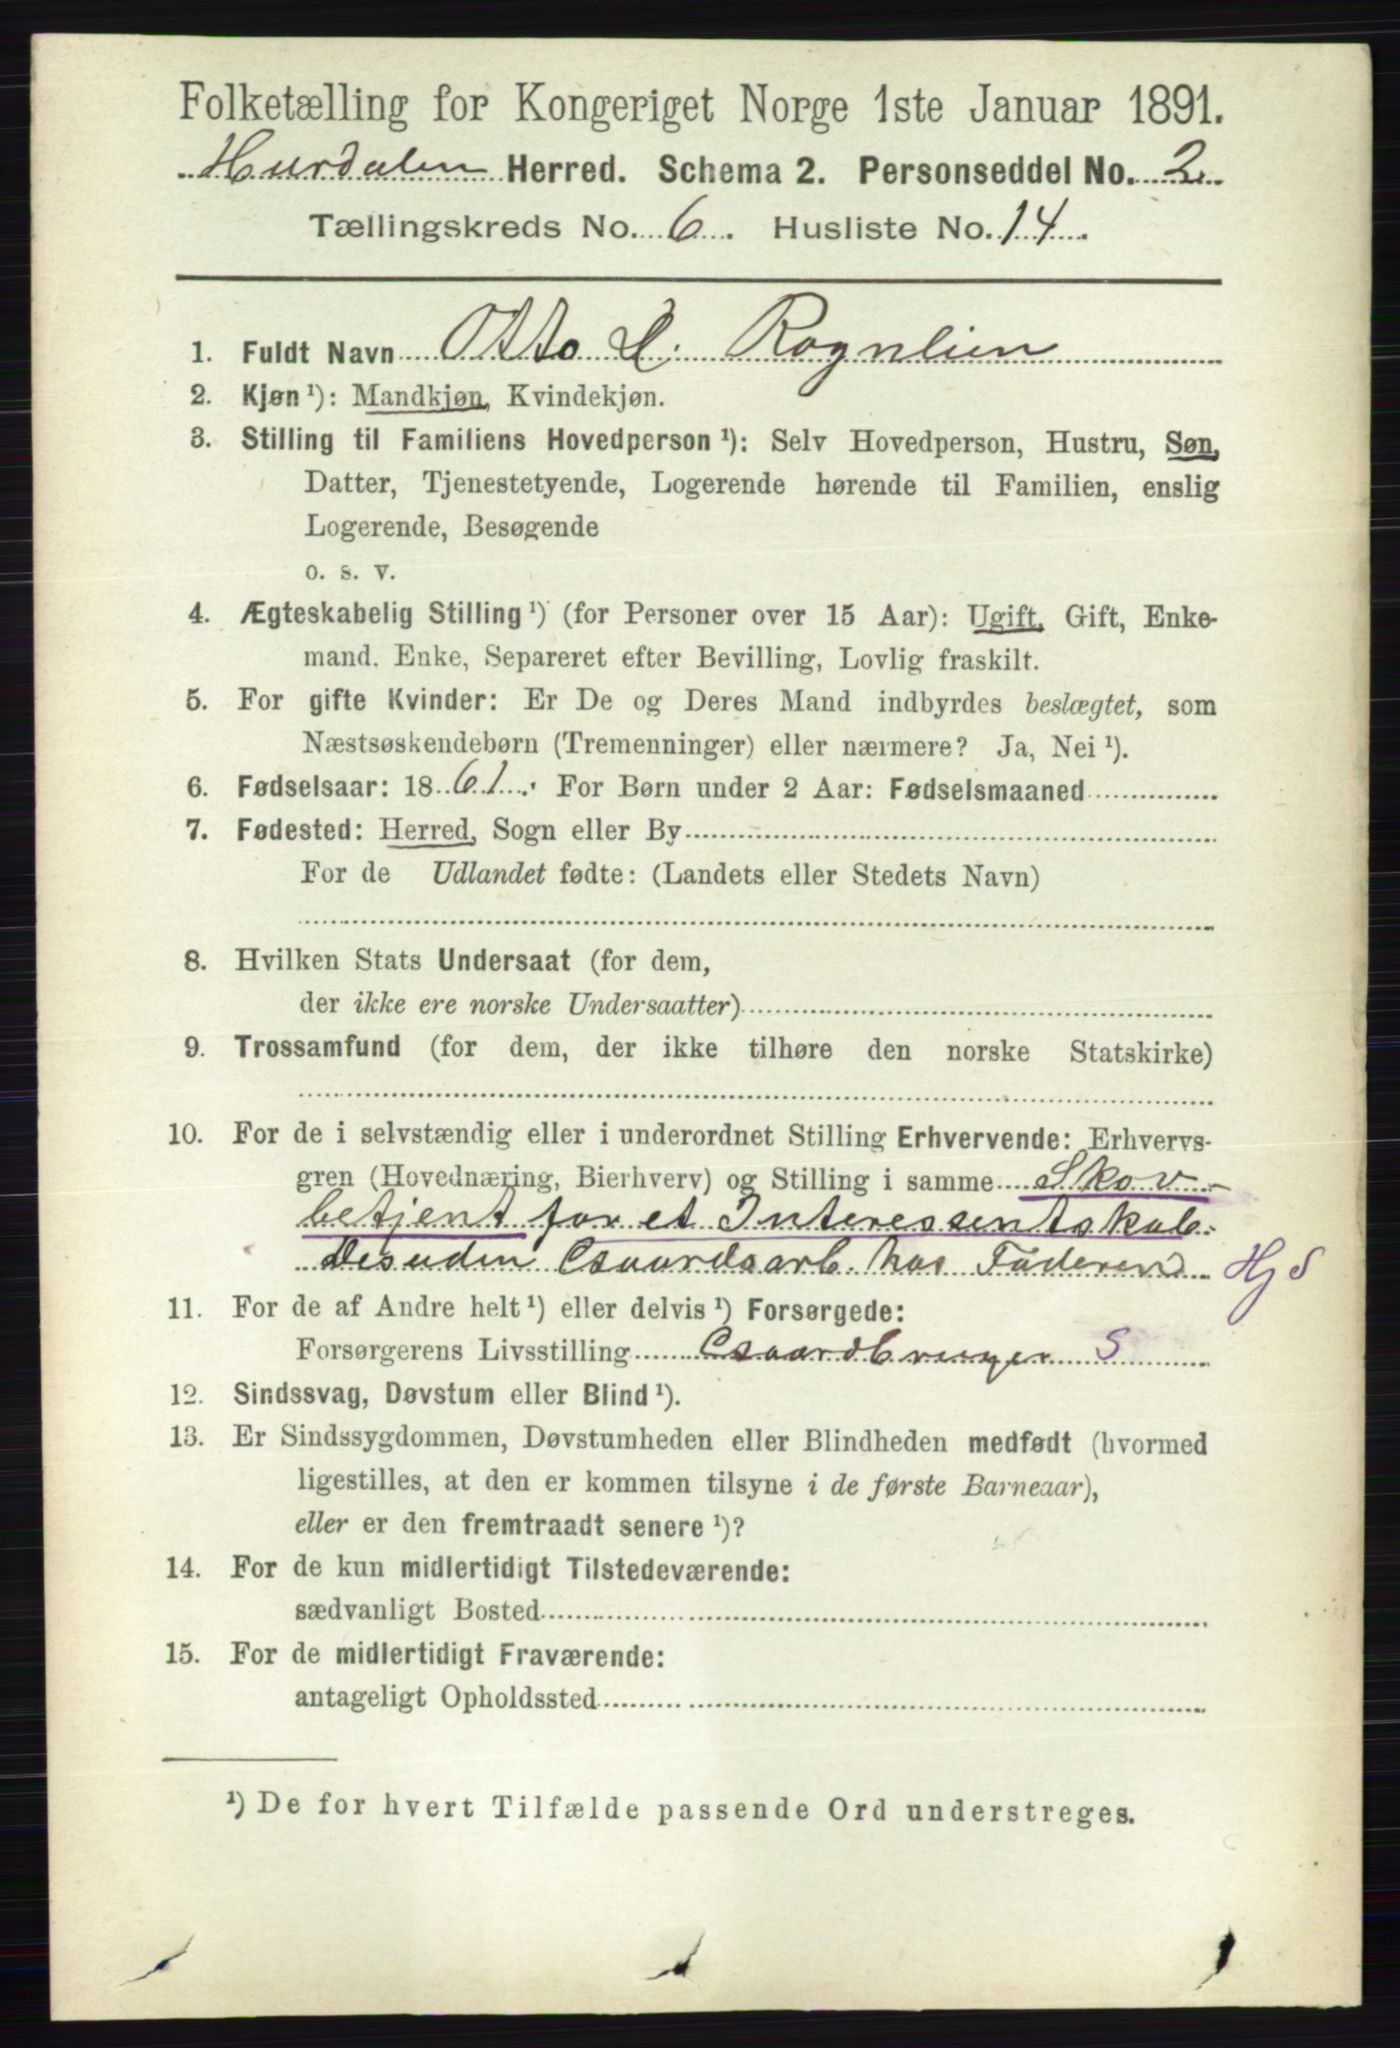 Folketælling for Kongeriget Norge 1ste Januar 1891.
Hurdalen Herred. Schema 2. Personseddel No. 2.
Tællingskreds No. 6. Husliste No. 14.
1. Fuldt Navn Otto L. Rognlien
2. Kjøn ¹): Mandkjøn, Kvindekjøn.
3. Stilling til Familiens Hovedperson ¹): Selv Hovedperson, Hustru, Søn,
Datter, Tjenestetyende, Logerende hørende til Familien, enslig
Logerende, Besøgende
o. s. v.
4. Ægteskabelig Stilling ¹) (for Personer over 15 Aar): Ugift, Gift, Enke-
mand. Enke, Separeret efter Bevilling, Lovlig fraskilt.
5. For gifte Kvinder: Er De og Deres Mand indbyrdes beslægtet, som
Næstsøskendebørn (Tremenninger) eller nærmere? Ja, Nei ¹).
6. Fødselsaar: 1861. For Børn under 2 Aar: Fødselsmaaned
7. Fødested: Herred, Sogn eller By
For de Udlandet fødte: (Landets eller Stedets Navn)
8. Hvilken Stats Undersaat (for dem,
der ikke ere norske Undersaatter)
9. Trossamfund (for dem, der ikke tilhøre den norske Statskirke)
10. For de i selvstændig eller i underordnet Stilling Erhvervende: Erhvervs-
gren (Hovednæring, Bierhverv) og Stilling i samme Skov-
betjent for et Interessentskab.
Desuden Gaardsarb. hos Faderen Hj S
11. For de af Andre helt ¹) eller delvis ¹) Forsørgede:
Forsørgerens Livsstilling Gaardbruger S
12. Sindssvag, Døvstum eller Blind ¹).
13. Er Sindssygdommen, Døvstumheden eller Blindheden medfødt (hvormed
ligestilles, at den er kommen tilsyne i de første Barneaar),
eller er den fremtraadt senere ¹)?
14. For de kun midlertidigt Tilstedeværende:
sædvanligt Bosted
15. For de midlertidigt Fraværende:
antageligt Opholdssted
¹) De for hvert Tilfælde passende Ord understreges.